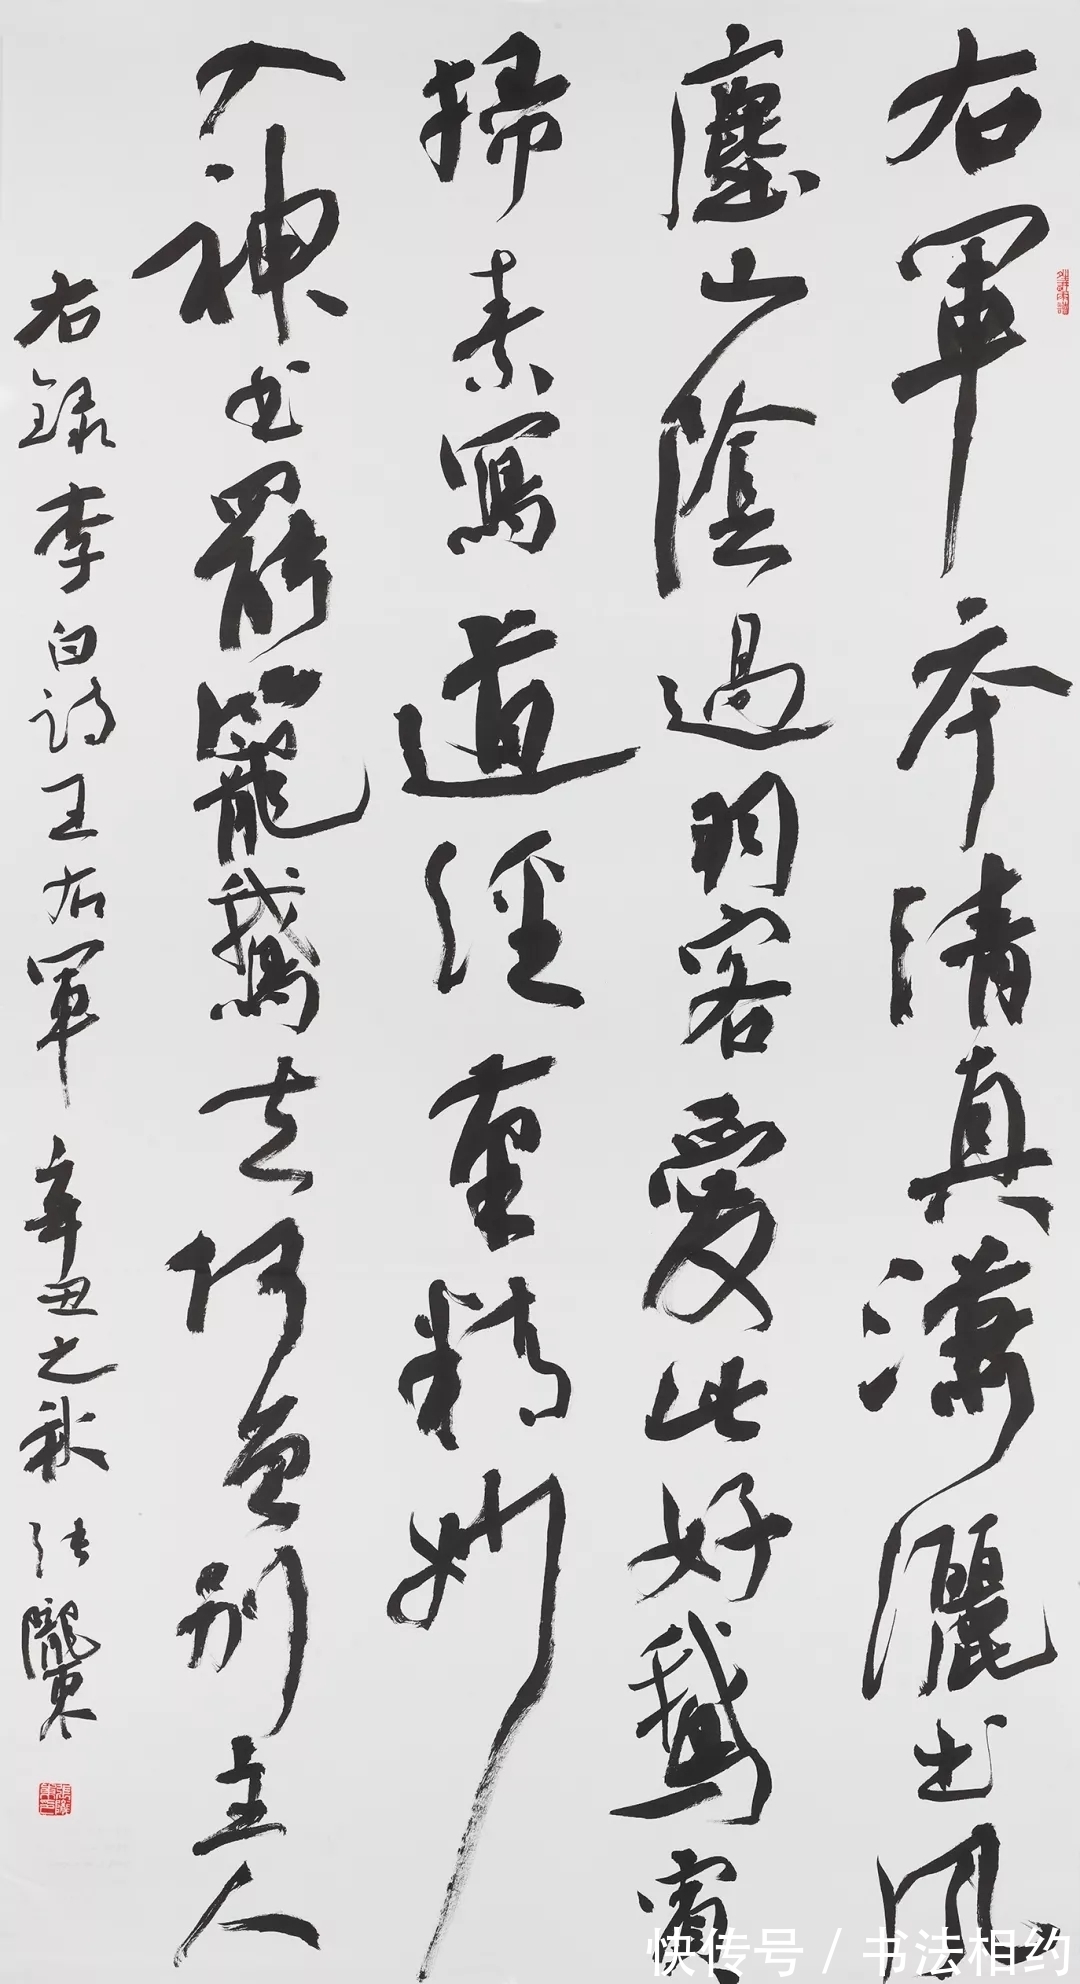 右軍本清真瀟灑出風
塵山陰過羽客愛此好鵝賓
掃素寫道經重精妙
入神書罷籠鵝去何曾別主人
右錄李白詩王右軍 辛丑之秋 張隴東
快传号 / 书法相约